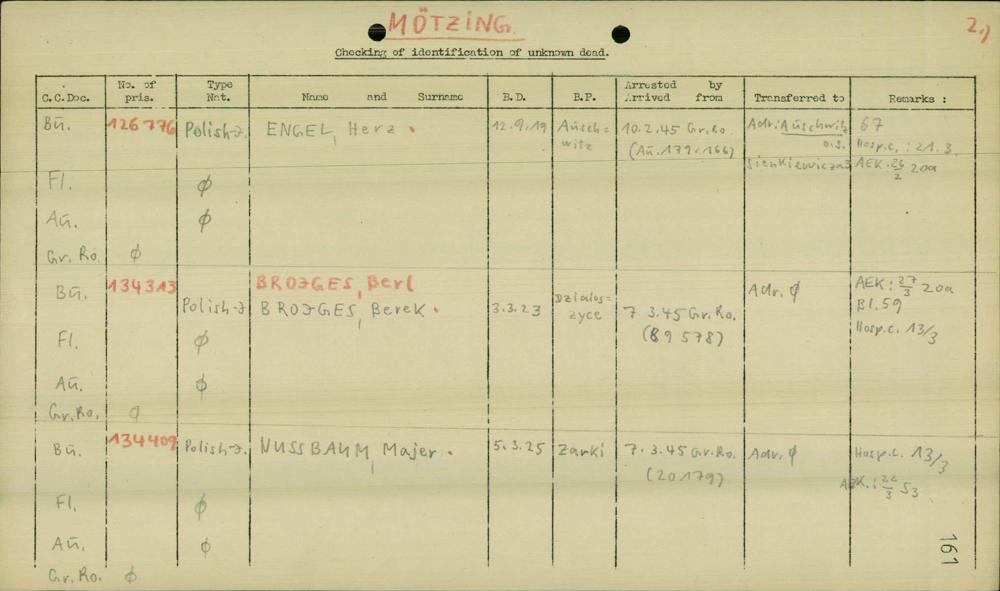 MÖTZING. 2.)
Checking of identification of unknown dead.
C.C.Doc. No. of pris. Type Nat. Name and Surname B.D. B.P. Arrested by Arrived from Transferred to Remarks :
Bū. 126776 Polish-J. ENGEL, Herz . 12.9.19 Ausch= 10.2.45 Gr.Ro. Adr: Auschwitz 67
witz (Au.179.166) o.S. Hosp.c. : 21.3.
Sienkiewicza3 AEK. 26/2 20a
Fl. ϕ
Au. ϕ
Gr. Ro. ϕ
Bū. 134313 BROJGES, Berl Adr. ϕ AEK : 27/3 20a
Polish-J BROJGES, Berek . 3.3.23 Dzialos= 7 3.45 Gr.Ro. Bl.59
zyce (89578) Hosp.c. 13/3
Fl. ϕ
Aū. ϕ
Gr. Ro. ϕ
Bū. 134409 Polish-J. NUSSBAUM, Majer . 5.3.25 Zarki 7.3.45 Gr.Ro. Adr. ϕ Hosp.c. 13/3
(20179) AEK.: 22/3 53
Fl. ϕ
Aū. ϕ
Gr. Ro. ϕ
161